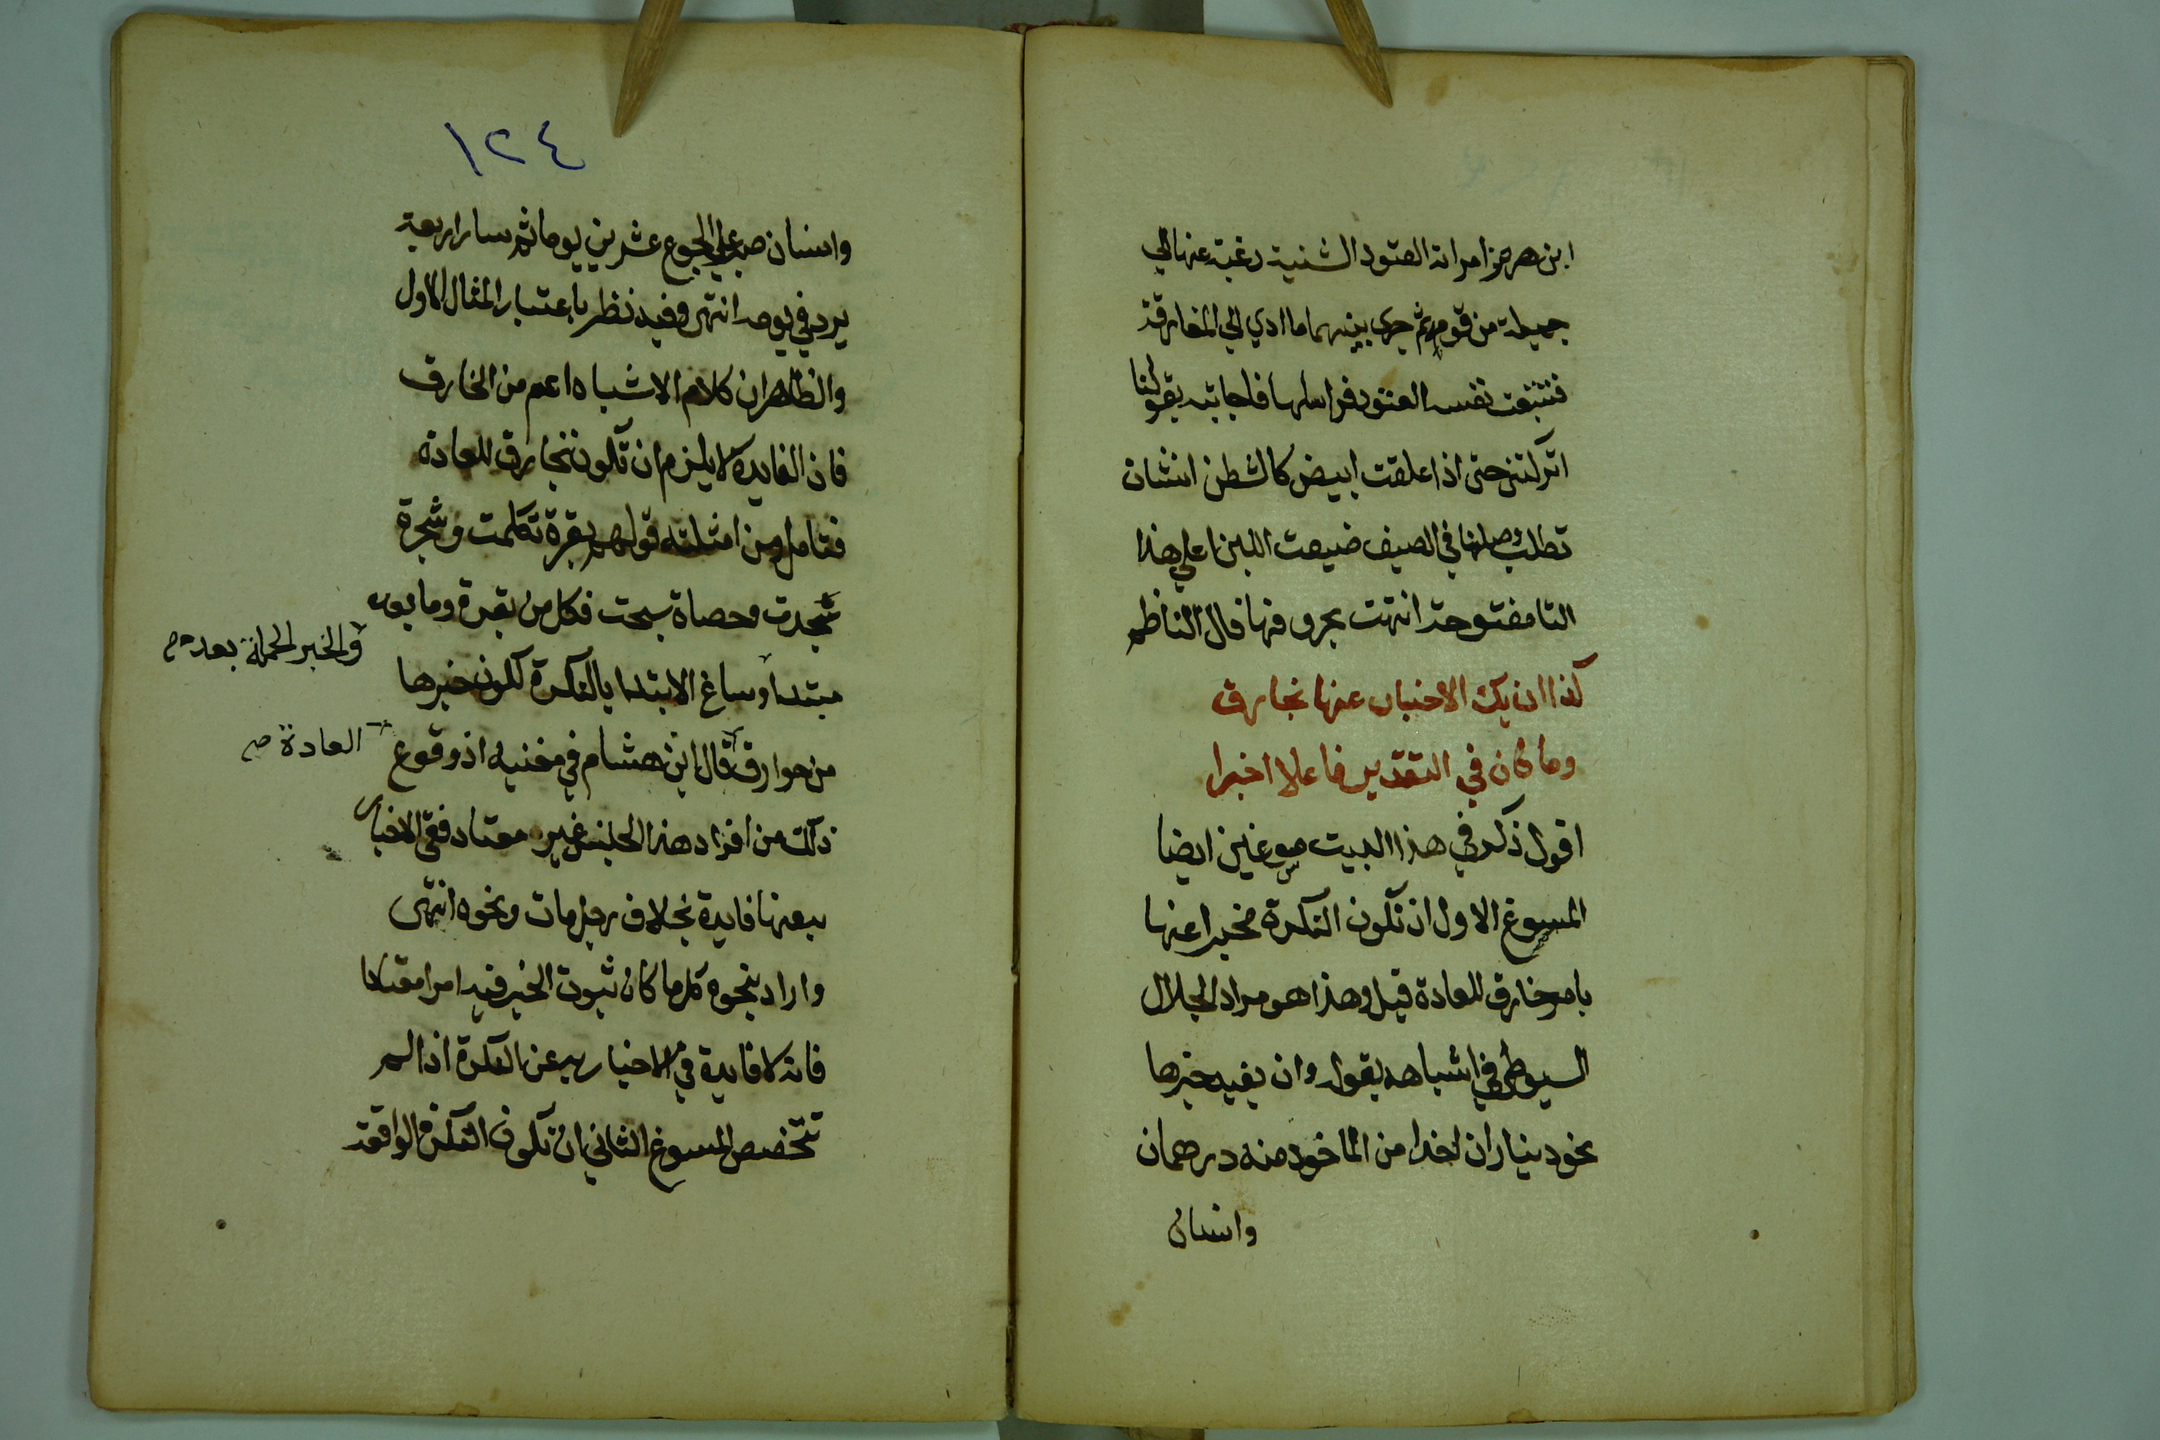 ابن هرمز امراته العتود الشنية رغبة عنها الي
جميلة من قومه ثم جري بينهما ما ادي الي المفارقة
فتتبعت نفسه العتود فراسلها فاجابته بقولها
اتركتني حتى اذا علقت ابيض كالشطن انشات
تطلب وصلنا في الصيف ضيعت اللبنا علي هذا
التا مفتوحة انتهت بحروفها قال الناظم
كذا ان يك الاخبار عنها بخارق
وما كان في التقدير فاعلا اخبرا
اقول ذكر في هذا البيت مسوغين ايضا
المسوغ الاول ان تكون النكرة مخبرا عنها
بامر خارق للعادة قيل وهذا هو مراد الجلال
السيوطي في اشباهه بقوله وان يفيد خبرها
نحو ديناران اخذا من الماخوذ منه درهمان
وانسان
١٢٤
وانسان صبر علي الجوع عشرين يوما ثم سار اربعة
برد في يومه انتهى وفيه نظر باعتبار المثال الاول
والظاهر ان كلام الاشباه اعم من الخارق
فان الفايدة لا يلزم ان تكون بخارق للعادة
فتامل ومن امثلته قولهم بقرة تكلمت وشجرة
سجدت وحصاة سبحت فكل من بقرة وما بعده
مبتدا وساغ الابتدا بالنكرة لكون خبرها
والخبر الجملة بعده صح
من خوارق قال ابن هشام في مغنيه اذ وقوع
العادة صح
ذلك من افراد هذا الجنس غير معتاد ففي الاخبار
به عنها فايدة بخلاف رجل مات ونحوه انتهى
واراد بنحوه كل ما كان ثبوت الخبر فيه امرا معتادا
فانه لا فايدة في الاخبار به عن النكرة اذا لم
تتخصص المسوغ الثاني ان تكون النكرة الواقعة